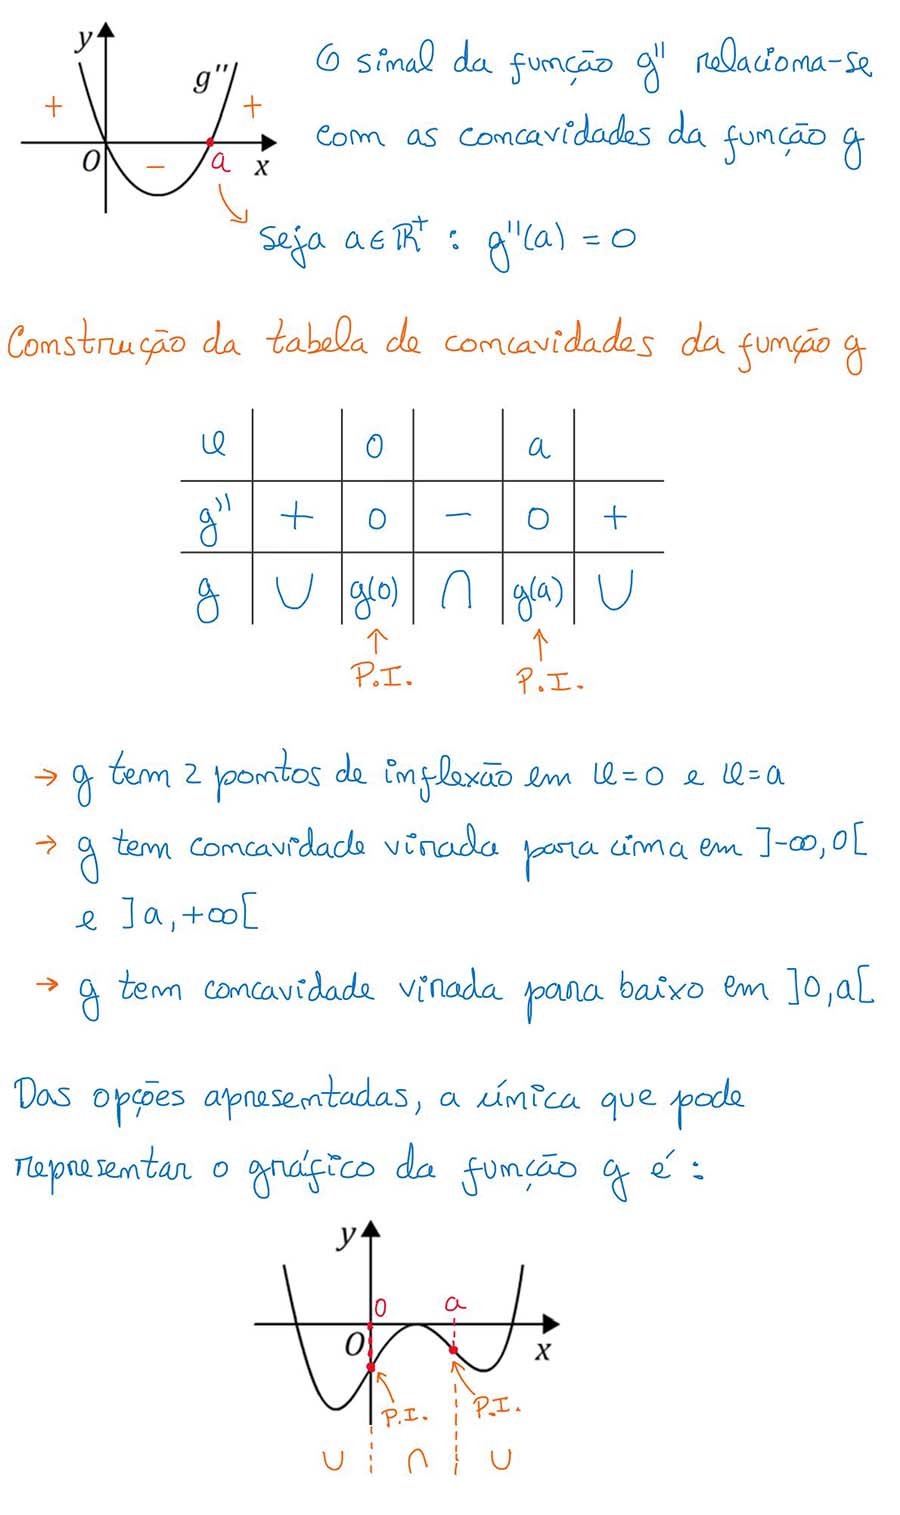 y
g''
+
+
O
−
a
x
O sinal da função g'' relaciona-se
com as concavidades da função g
Seja a ∈ ℝ⁺ : g''(a) = 0
Construção da tabela de concavidades da função g
x 0 a
g'' + 0 − 0 +
g ∪ g(0) ∩ g(a) ∪
↑ ↑
P.I. P.I.
→ g tem 2 pontos de inflexão em x=0 e x=a
→ g tem concavidade virada para cima em ]-∞,0[
e ]a,+∞[
→ g tem concavidade virada para baixo em ]0,a[
Das opções apresentadas, a única que pode
representar o gráfico da função g é:
y
0 a
O
x
P.I. P.I.
∪ ∩ ∪